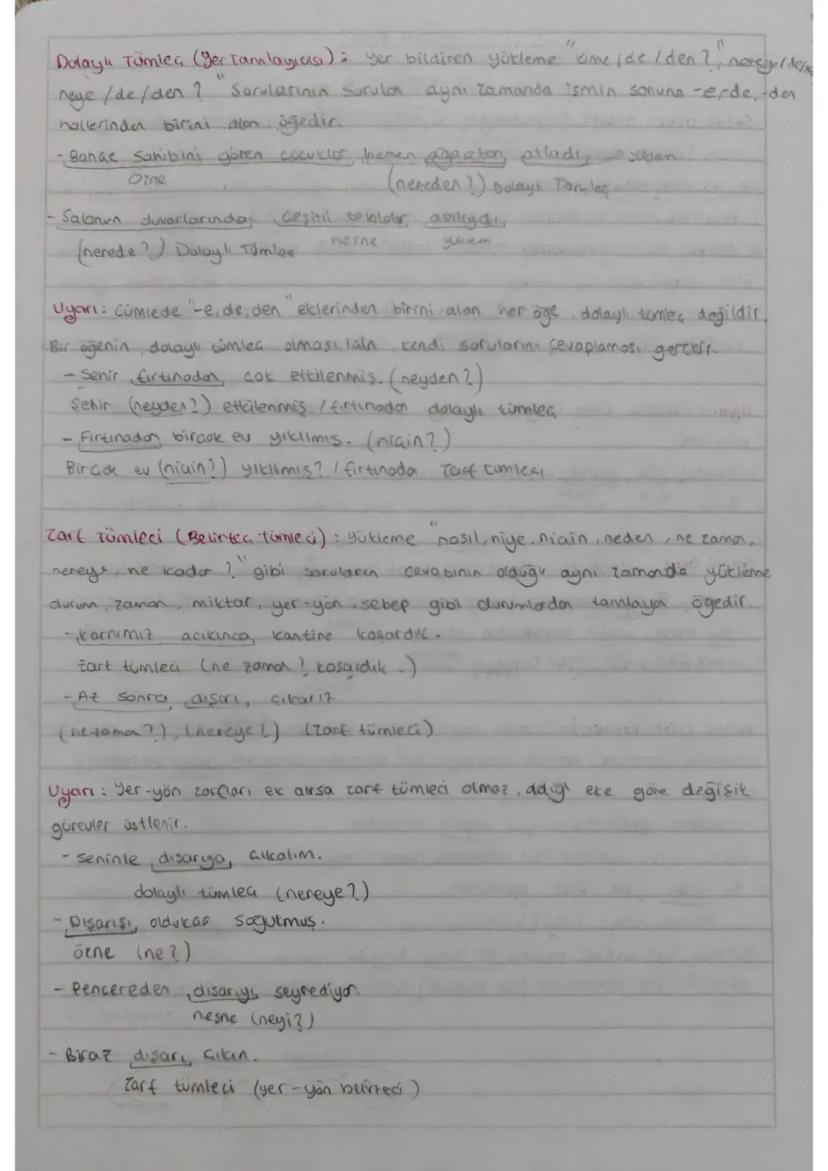 Dolaylı Tümleç (Yer Tamlayıcısı): Yer bildiren yükleme "kime/de/den?", nereye/de/den
neye/de/den?" Sorularının sorulan aynı zamanda ismin sonuna -e,-de,-den
hallerinden birini alan ögedir.
- Bekçi Sahibini gören çocuklar, hemen ağaçtan, atladı, → yüklem
Özne (nereden?) Dolaylı Tümleç
- Salonun duvarlarında, çeşitli tablolar, asılıydı,
nesne yüklem
(nerede?) Dolaylı Tümleç
Uyarı: Cümlede "-e, de, den" eklerinden birini alan her öge, dolaylı tümleç değildir.
Bir ögenin, dolaylı tümleç olması için, kendi sorularını cevaplaması gerekir.
- Şehir fırtınadan, çok etkilenmiş. (neyden?)
Şehir (neyden?) etkilenmiş / fırtınadan dolaylı tümleç
- Fırtınadan birçok ev yıkılmış. (niçin?)
Birçok ev (niçin?) yıkılmış? / fırtınada zarf tümleci
Zarf Tümleci (Belirteç tümleci): yükleme "nasıl, niye, niçin, neden, ne zaman,
nereye, ne kadar?" gibi soruların cevabının olduğu aynı zamanda yükleme
durum, zaman, miktar, yer-yön, sebep gibi durumlardan tamlayan ögedir.
- Karnımız acıkınca, kantine koşardık.
zarf tümleci (ne zaman?, koşardık.)
- Az sonra, dışarı, çıkarız
(ne zaman?), (nereye?) (zarf tümleci)
Uyarı: Yer-yön zarfları ek alırsa zarf tümleci olmaz, aldığı eke göre değişik
görevler üstlenir.
- Seninle, dışarıya, çıkalım.
dolaylı tümleç (nereye?)
- Dışarısı, oldukça soğutmuş.
özne (ne?)
- Pencereden, dışarıyı, seyrediyor.
nesne (neyi?)
- Biraz dışarı, çıkın.
Zarf tümleci (yer-yön belirteci)